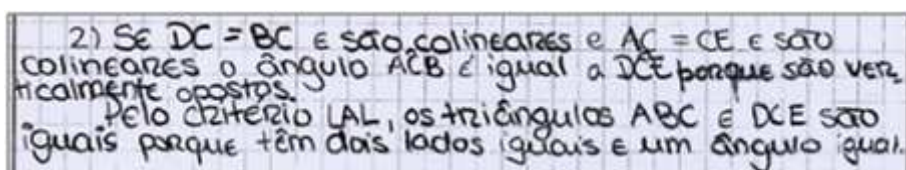 2) SE DC = BC E SÃO COLINEARES e AC = CE E SÃO
COLINEARES O ângulo ACB é igual a DCE porque são VER_
ticalmente opostos.
PElo CRITÉRIO LAL, os triângulos ABC E DCE são
iguais porque têm dois lados iguais E um ângulo igual.